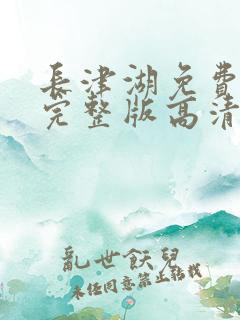 長津湖免費
完整版高清
亂世飫兒
未经同意禁止转载